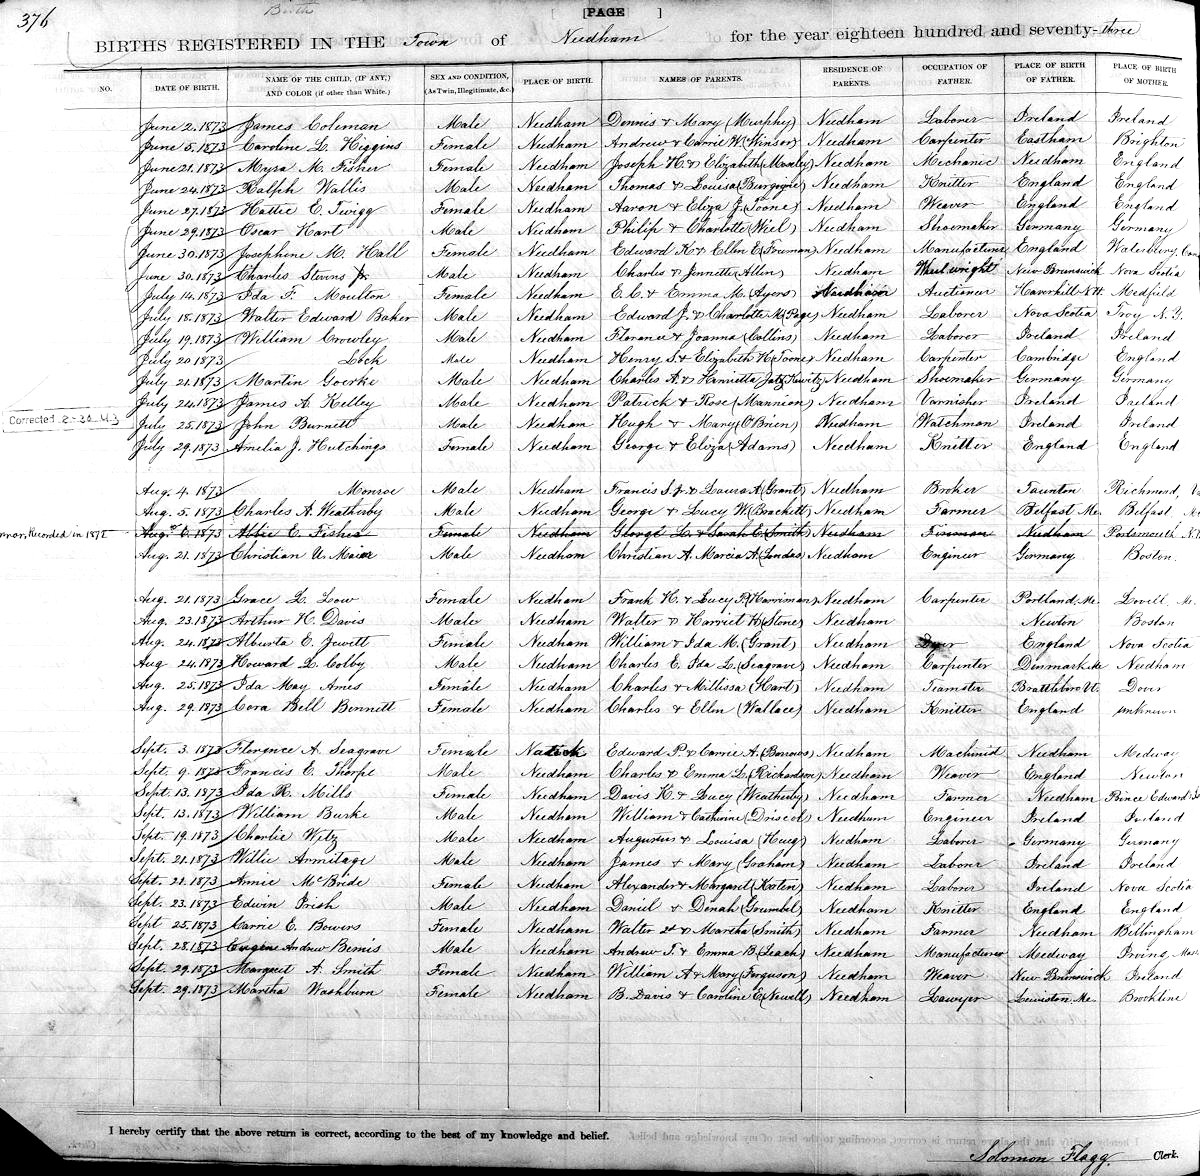 376
Birth
[PAGE ]
BIRTHS REGISTERED IN THE Town of Needham for the year eighteen hundred and seventy-three
NO. DATE OF BIRTH. NAME OF THE CHILD, (IF ANY,) AND COLOR (if other than White.) SEX AND CONDITION, (As Twin, Illegitimate, &c.) PLACE OF BIRTH. NAMES OF PARENTS. RESIDENCE OF PARENTS. OCCUPATION OF FATHER. PLACE OF BIRTH OF FATHER. PLACE OF BIRTH OF MOTHER.
June 2. 1873 James Coleman Male Needham Dennis & Mary (Murphy) Needham Laborer Ireland Ireland
June 5. 1873 Caroline L. Higgins Female Needham Andrew & Carrie W. (Winsor) Needham Carpenter Eastham Brighton
June 21. 1873 Myra M. Fisher Female Needham Joseph H. & Elizabeth (Moseley) Needham Mechanic Needham England
June 24. 1873 Ralph Wallis Male Needham Thomas & Louisa (Burgoyne) Needham Knitter England England
June 27. 1873 Hattie E. Twigg Female Needham Aaron & Eliza J. (Toone) Needham Weaver England England
June 29. 1873 Oscar Hart Male Needham Philip & Charlotte (Wiel) Needham Shoemaker Germany Germany
June 30. 1873 Josephine M. Hall Female Needham Edward K. & Ellen E. (Freeman) Needham Manufacturer England Waterbury, Conn
June 30. 1873 Charles Stevens Jr. Male Needham Charles & Jennette (Allen) Needham Wheelwright New Brunswick Nova Scotia
July 14. 1873 Ida F. Moulton Female Needham E. C. & Emma M. (Ayers) Needham Auctioneer Haverhill N.H. Medfield
July 18. 1873 Walter Edward Baker Male Needham Edward J. & Charlotte M. (Page) Needham Laborer Nova Scotia Troy N.Y.
July 19. 1873 William Crowley Male Needham Florence & Joanna (Collins) Needham Laborer Ireland Ireland
July 20 1873 Lock Male Needham Henry S. & Elizabeth H. (Toone) Needham Carpenter Cambridge England
July 21. 1873 Martin Goerke Male Needham Charles A. & Henrietta Needham Shoemaker Germany Germany
July 24. 1873 James A. Kelley Male Needham Patrick & Rose (Mannion) Needham Varnisher Ireland Ireland
Corrected 2-30-43
July 25. 1873 John Burnett Male Needham Hugh & Mary (O'Brien) Needham Watchman Ireland Ireland
July 29. 1873 Amelia J. Hutchings Female Needham George & Eliza (Adams) Needham Knitter England England
Aug. 4. 1873 Monroe Male Needham Francis S. & Laura A. (Grant) Needham Broker Taunton Richmond,
Aug. 5. 1873 Charles A. Weatherby Male Needham George & Lucy W. (Brackett) Needham Farmer Belfast Me. Belfast,
Recorded in 1872 Aug. 6. 1873 Abbie E. Fisher Female Needham George L. & Sarah E. (Smith) Needham Fireman Needham Portsmouth N.H.
Aug. 21. 1873 Christian A. Maier Male Needham Christian A. Marcia A. (Landas) Needham Engineer Germany Boston.
Aug. 21. 1873 Grace L. Low Female Needham Frank H. & Lucy P. (Harriman) Needham Carpenter Portland, Me. Lovell, Me.
Aug. 23. 1873 Arthur H. Davis Male Needham Walter & Harriet H. (Stone) Needham Newton Boston
Aug. 24. 1873 Alberta E. Jewett Female Needham William & Ida M. (Grant) Needham Dyer England Nova Scotia
Aug 24. 1873 Howard L. Colby Male Needham Charles E. Ida L. (Seagrave) Needham Carpenter Denmark Me Needham
Aug. 25. 1873 Ida May Ames Female Needham Charles & Millissa (Hart) Needham Teamster Brattleboro Vt. Dover
Aug. 29. 1873 Cora Bell Bennett Female Needham Charles & Ellen (Wallace) Needham Knitter England unknown
Sept. 3. 1873 Florence A. Seagrave Female Natick Edward P. & Carrie A. (Barrows) Needham Machinist Needham Medway
Sept. 9. 1873 Francis E. Thorpe Male Needham Charles & Emma L. (Richardson) Needham Weaver England Newton
Sept. 13. 1873 Ida R. Mills Female Needham Davis K. & Lucy (Weatherby) Needham Farmer Needham Prince Edward
Sept. 13. 1873 William Burke Male Needham William & Catherine (Driscol) Needham Engineer Ireland Ireland
Sept. 19. 1873 Charlie Witz Male Needham Augustus & Louisa (Hueg) Needham Laborer Germany Germany
Sept. 21. 1873 Willie Armitage Male Needham James & Mary (Graham) Needham Laborer Ireland Ireland
Sept. 21. 1873 Annie McBride Female Needham Alexander & Margaret (Keeten) Needham Laborer Ireland Nova Scotia
Sept. 23. 1873 Edwin Irish Male Needham Daniel & Dinah (Grumbel) Needham Knitter England England
Sept 25. 1873 Carrie E. Bowers Female Needham Walter & Martha (Smith) Needham Farmer Needham Bellingham
Sept. 28. 1873 Eugene Andrew Bemis Male Needham Andrew T. & Emma B. (Leach) Needham Manufacturer Medway Irving, Mass
Sept. 29. 1873 Margaret A. Smith Female Needham William A. & Mary (Ferguson) Needham Weaver New Brunswick Ireland
Sept. 29. 1873 Martha Washburn Female Needham B. Davis & Caroline E. (Newell) Needham Lawyer Lewiston, Me. Brookline
I hereby certify that the above return is correct, according to the best of my knowledge and belief.
Solomon Flagg Clerk.